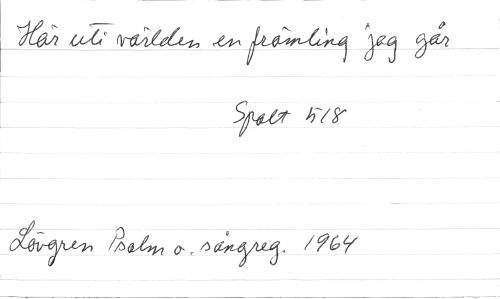 Här uti världen en främling jag går
Spalt 518
Lövgren Psalm o. sångreg. 1964